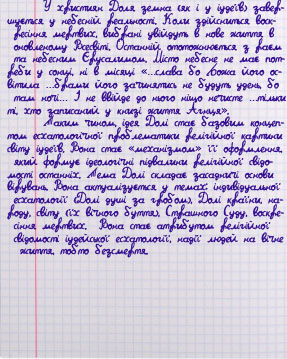 У християн Доля земна (як і у іудеїв) завер-
шується у небесній реальності. Коли здійсниться воск-
ресіння мертвих, вибрані увійдуть в нове життя в
оновленому Всесвіті. Останній ототожнюється з раєм
та небесним Єрусалимом. Місто небесне не має пот-
реби у сонці, ні в місяці «...слава бо Божа його ос-
вітила ...брами його зачинятись не будуть удень, бо
там ночі... І не ввійде до нього ніщо нечисте ...тільки
ті, хто записаний у книзі життя Агнця».
Таким чином, ідея Долі стає базовим концеп-
том есхатологічної проблематики релігійної картини
світу іудеїв. Вона стає «механізмом» її оформлення,
який формує ідеологічні підвалини релігійної свідо-
мості останніх. Тема Долі складає засадничі основи
вірувань. Вона актуалізується у темах: індивідуальної
есхатології (Долі душі за гробом), Долі країни, на-
роду, світу (їх вічного буття), Страшного Суду, воскре-
сіння мертвих. Вона стає атрибутом релігійної
свідомості іудейської есхатології, надії людей на вічне
життя, тобто безсмертя.